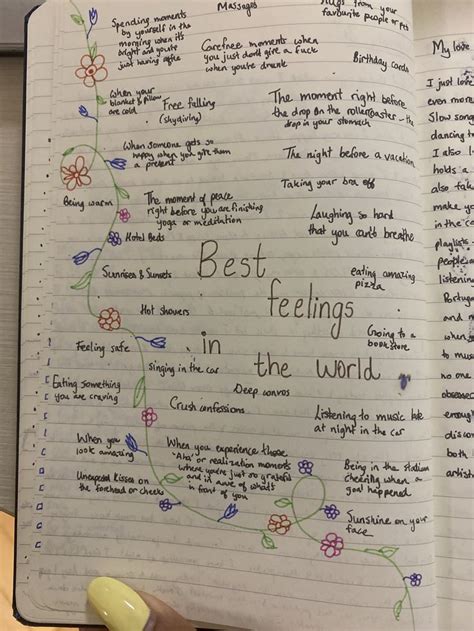 Massages
Hugs from your
favourite people or pets
Spending moments
by yourself in the
morning when its
bright and youre
just having coffee
Carefree moments when
you just dont give a fuck
when youre drunk
Birthday cards
When your
blanket & pillow
are cold
Free falling
(skydiving)
The moment right before
the drop on the rollercoaster - the
drop in your stomach
When someone gets so
happy when you give them
a present
The night before a vacation
Taking your bra off
Being warm
The moment of peace
right before you are finishing
yoga or meditation
Laughing so hard
that you can't breathe
Hotel Beds
Sunrises & Sunsets
Best
feelings
in
the world
eating amazing
pizza
Hot showers
Going to a
bookstore
Feeling safe
singing in the car
Deep convos
Eating something
you are craving
Crush confessions
Listening to music late
at night in the car
When you
look amazing
When you experience those
'Aha' or realization moments
where you're just so grateful
and in awe of what's
in front of you
Being in the stadium
cheering when a
goal happened
Unexpected kisses on
the forehead or cheeks
Sunshine on your
face
My love
I just love
even more
Slow song
dancing to
I also l
holds a
also fal
make yo
in the ca
playlists
people a
listenin
Portug
and n
when
to mus
no one
obsesse
enoug
disco
both
artist